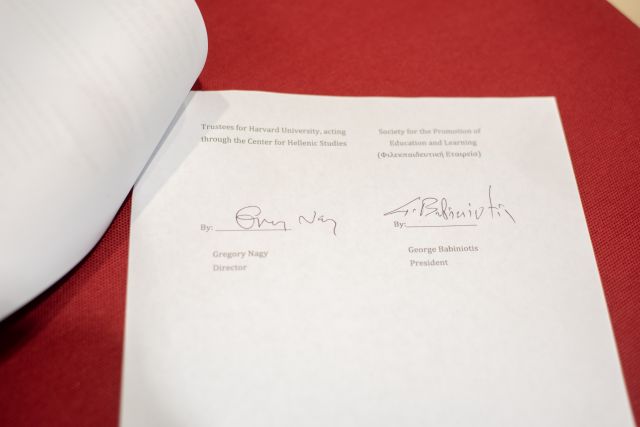 Trustees for Harvard University, acting
through the Center for Hellenic Studies
By: Greg Nagy
Gregory Nagy
Director
Society for the Promotion of
Education and Learning
(Φιλεκπαιδευτική Εταιρεία)
By: G. Babiniotis
George Babiniotis
President